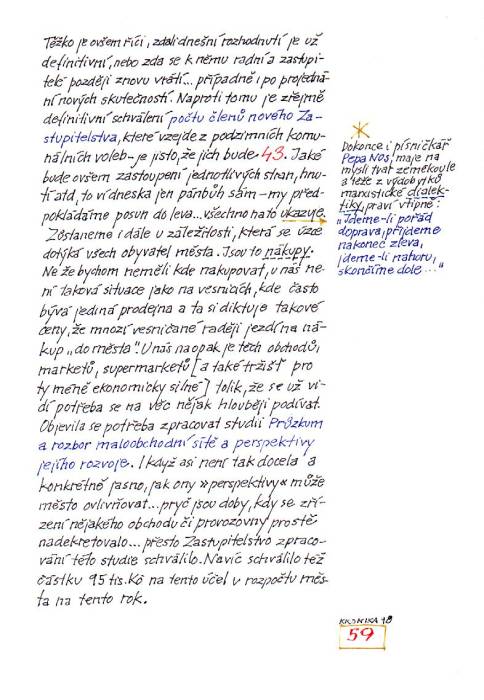 Těžko je ovšem říci, zdali dnešní rozhodnutí je už
definitivní, nebo zda se k němu radní a zastupi-
telé později znovu vrátí... případně i po projedná-
ní nových skutečností. Naproti tomu je zřejmě
definitivní schválení počtu členů nového Za-
stupitelstva, které vzejde z podzimních komu-
nálních voleb - je jisto, že jich bude 43. Jaké
bude ovšem zastoupení jednotlivých stran, hnu-
tí atd, to ví dneska jen pánbůh sám - my před-
pokládáme posun do leva... všechno na to ukazuje.
Zůstaneme i dále u záležitosti, která se úzce
dotýká všech obyvatel města. Jsou to nákupy.
Ne že bychom neměli kde nakupovat, u nás ne-
ní taková situace jako na vesnicích, kde často
bývá jediná prodejna a ta si diktuje takové
ceny, že mnozí vesničané raději jezdí na ná-
kup „do města". U nás naopak je těch obchodů,
marketů, supermarketů [a také tržišť pro
ty méně ekonomicky silné] tolik, že se už vi-
dí potřeba se na věc nějak hlouběji podívat.
Objevila se potřeba zpracovat studii Průzkum
a rozbor maloobchodní sítě a perspektivy
jejího rozvoje. I když asi není tak docela a
konkrétně jasno, jak ony »perspektivy« může
město ovlivňovat... pryč jsou doby, kdy se zří-
zení nějakého obchodu či provozovny prostě
nadekretovalo... přesto Zastupitelstvo zpraco-
vání této studie schválilo. Navíc schválilo též
částku 95 tis. Kč na tento účel v rozpočtu měs-
ta na tento rok.
Dokonce i písničkář
Pepa Nos, maje na
mysli tvar zeměkoule
a též z výdobytků
marxistické dialek-
tiky, praví vtipně:
„Jdeme-li pořád
doprava, přijdeme
nakonec zleva,
jdeme-li nahoru,
skončíme dole..."
KRONIKA 98
59